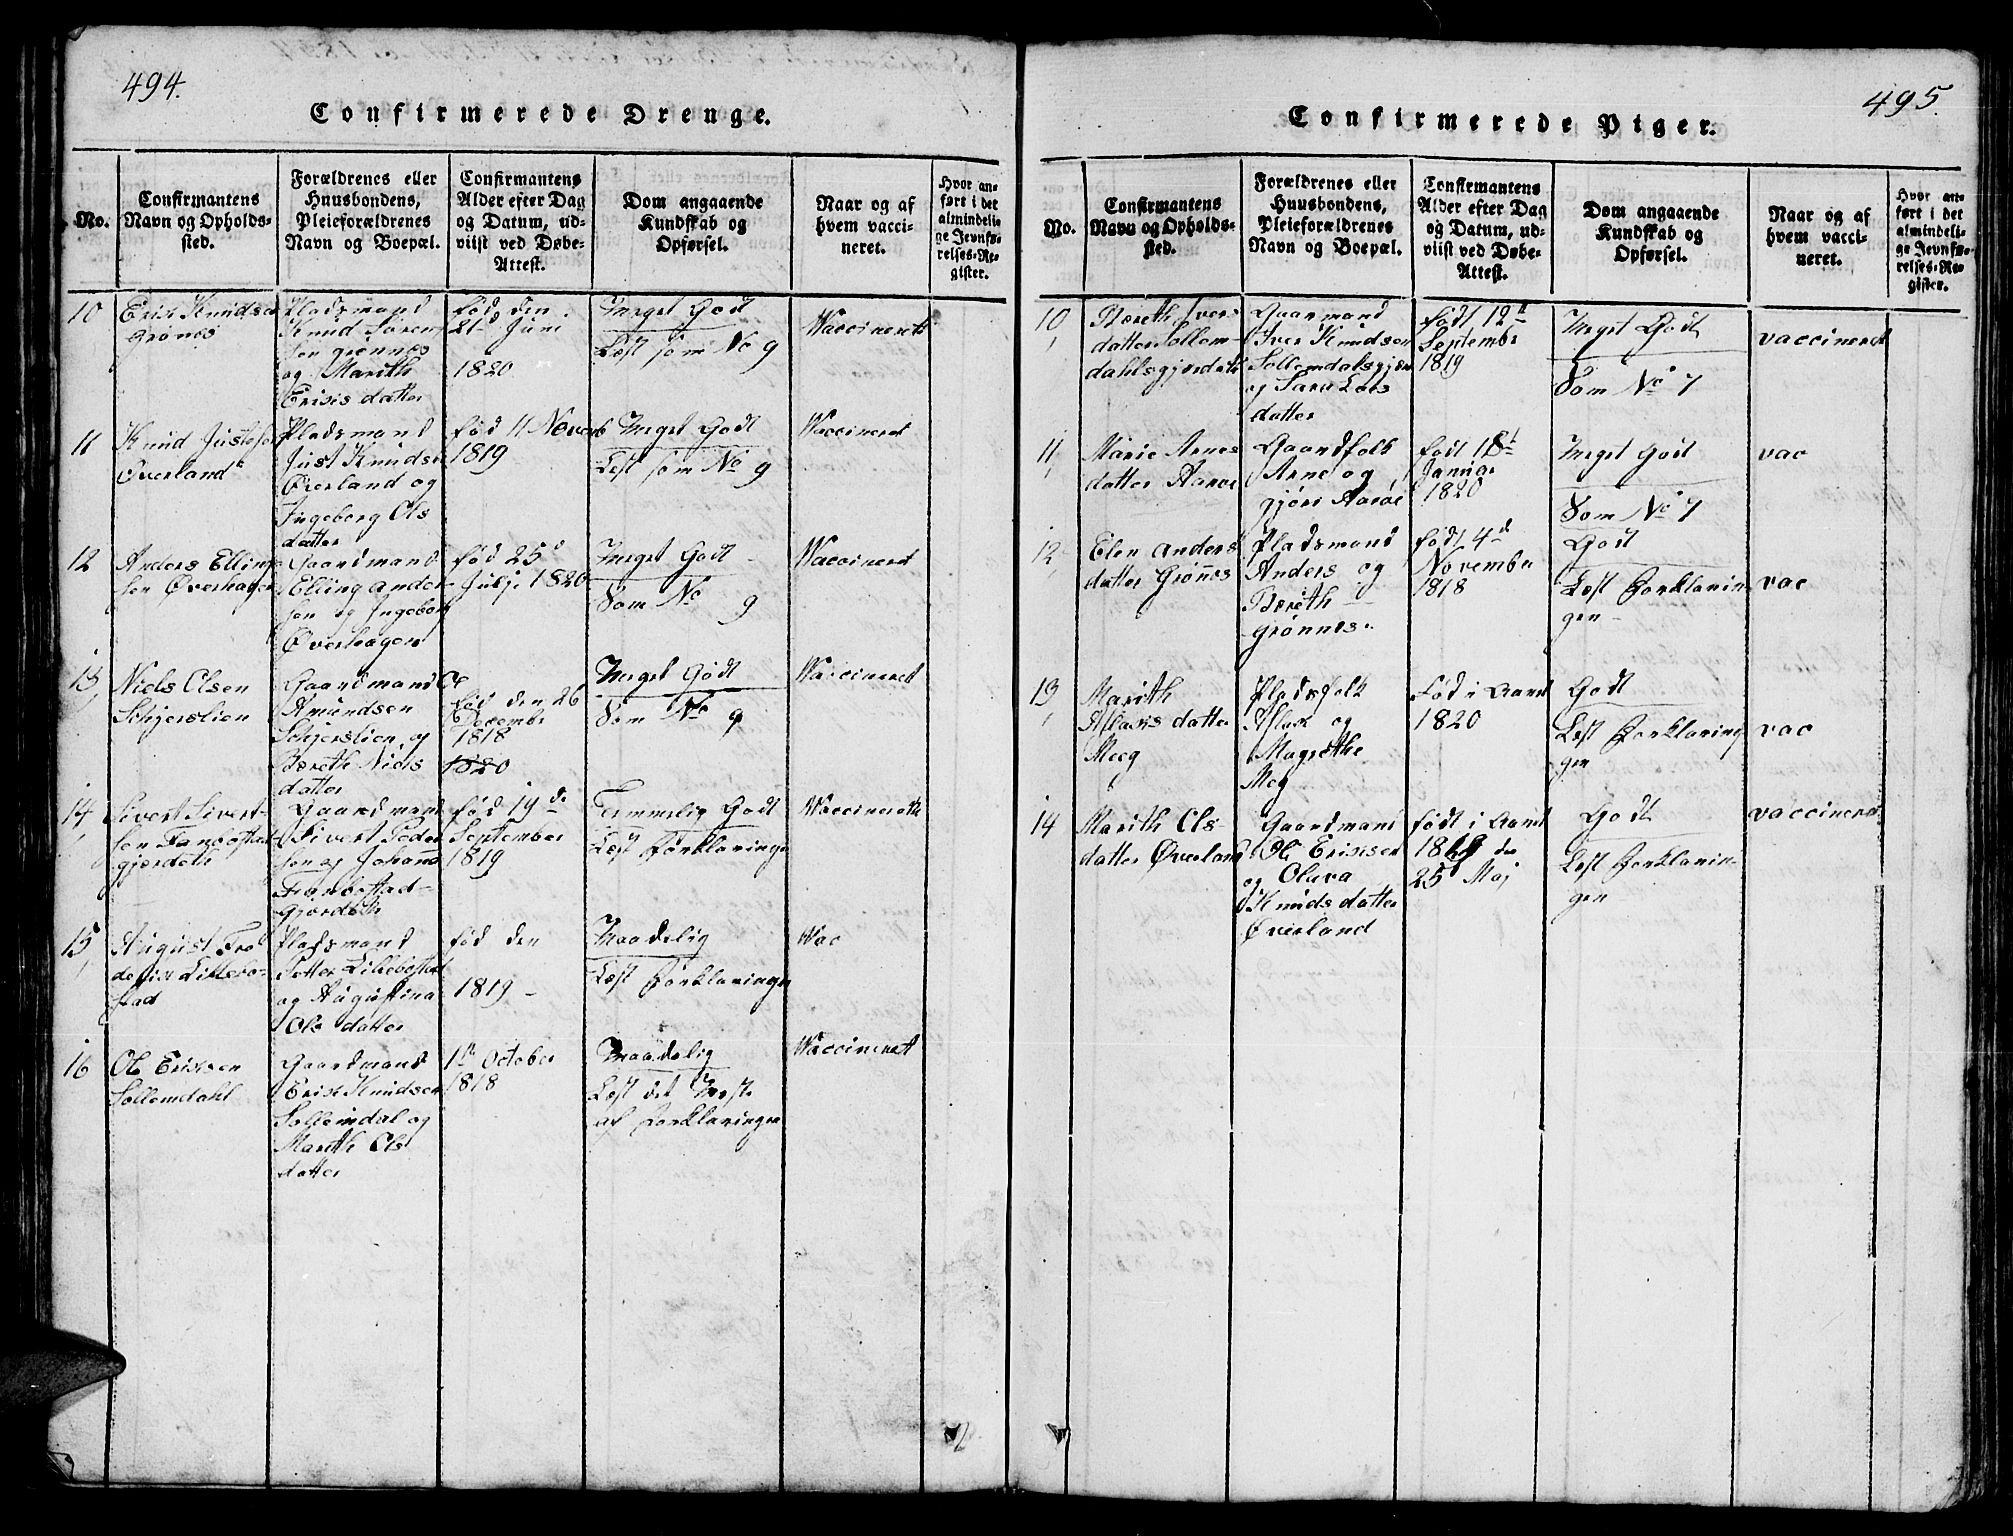 494.
Confirmerede Drenge.
No.
Confirmantens
Navn og Opholds-
sted.
Forældrenes eller
Huusbondens,
Pleieforældrenes
Navn og Boepæl.
Confirmantens
Alder efter Dag
og Datum, ud-
viist ved Døbe-
Attest.
Dom angaaende
Kundskab og
Opførsel.
Naar og af
hvem vacci-
neret.
Hvor an-
ført i det
almindeli-
ge Jevnfø-
relses-Re-
gister.
10
Erik Knudsen
Grønes
Pladsmand
Knud Søren
sen Grønnes
og Marith
Eriksdatter
fød den
21d Juni
1820
Meget Godt
Læst som No 9
Vaccineret
11
Knud Justsen
Øverland
Pladsmand
Just Knudsen
Øverland og
Ingeborg Ols
datter
fød 11 Novemb
1819
Meget Godt
Læst som No 9
Vaccineret
12
Anders Elling
sen Øverhagen
Gaardmand
Elling Ander
sen og Ingeborg
Øverhagen
fød 25d
Julj. 1820
Meget Godt
Som No 9
Vaccineret
13
Niels Olsen
Schjerslien
Gaardmand Ole
Amundsen
Schjerslien og
Bereth Niels
datter
fød den 26
December
1818
1820
Meget Godt
Som No 9
Vaccineret
14
Sivert Sivert-
sen Farbostad
gjerdet
Gaardmand
Sivert Peder
sen og Johana
Farbostad-
gjerdet
fød 19de
September
1819
Temmelig Godt
Læst Forklaringen
Vaccineret
15
August Fre
derik Lillebo-
stad
Pladsmand
Petter Lillebostad
og Augustina
Ols datter
fød den
1819 -
Maadelig
Læst Forklaringen
Vac
16
Ole Eriksen
Sollemdahl
Gaardmand
Erik Knudsen
Sollemdal og
Marith Ols
datter
1ste October
1818
Maadelig
Læst det Meste
af Forklaringen
Vaccineret
495.
Confirmerede Piger.
No.
Confirmantens
Navn og Opholds-
sted.
Forældrenes eller
Huusbondens,
Pleieforældrenes
Navn og Boepæl.
Confirmantens
Alder efter Dag
og Datum, ud-
viist ved Døbe-
Attest.
Dom angaaende
Kundskab og
Opførsel.
Naar og af
hvem vacci-
neret.
Hvor an-
ført i det
almindeli-
ge Jevnfø-
relses-Re-
gister.
10
Bereth Ivers
datter Sollem-
dahlsgjerdet
Gaarmand
Iver Knudsen
Sollemdalsgjer
og Sara Lars
datter
født 12te
September
1819
Meget Godt
Som No 7
vaccineret
11
Marie Arnes
datter Aarøe
Gaardfolk
Arne og
Gjøri Aarøe
født 18de
Januar
1820
Meget godt
Som No 7
vac
12
Elen Anders
datter Grønes
Pladsmand
Anders og
Bereth
Grønnes.
født 4d
November
1818
Godt
Læst Forklarin
gen -
vac
13
Marith
Aslaks datter
Meeg
Pladsfolk
Aslak og
Magrethe
Meg
Fød i Aaret
1820
Godt
Læst Forklaring
gen
vac
14
Marith Ols-
datter Øverland
Gaardmand
Ole Eriksen
og Olava
Knuds datter
Øverland
født i Aaret
1819 den
25d Maj
Godt
Læst Forklarin-
gen
vaccineret